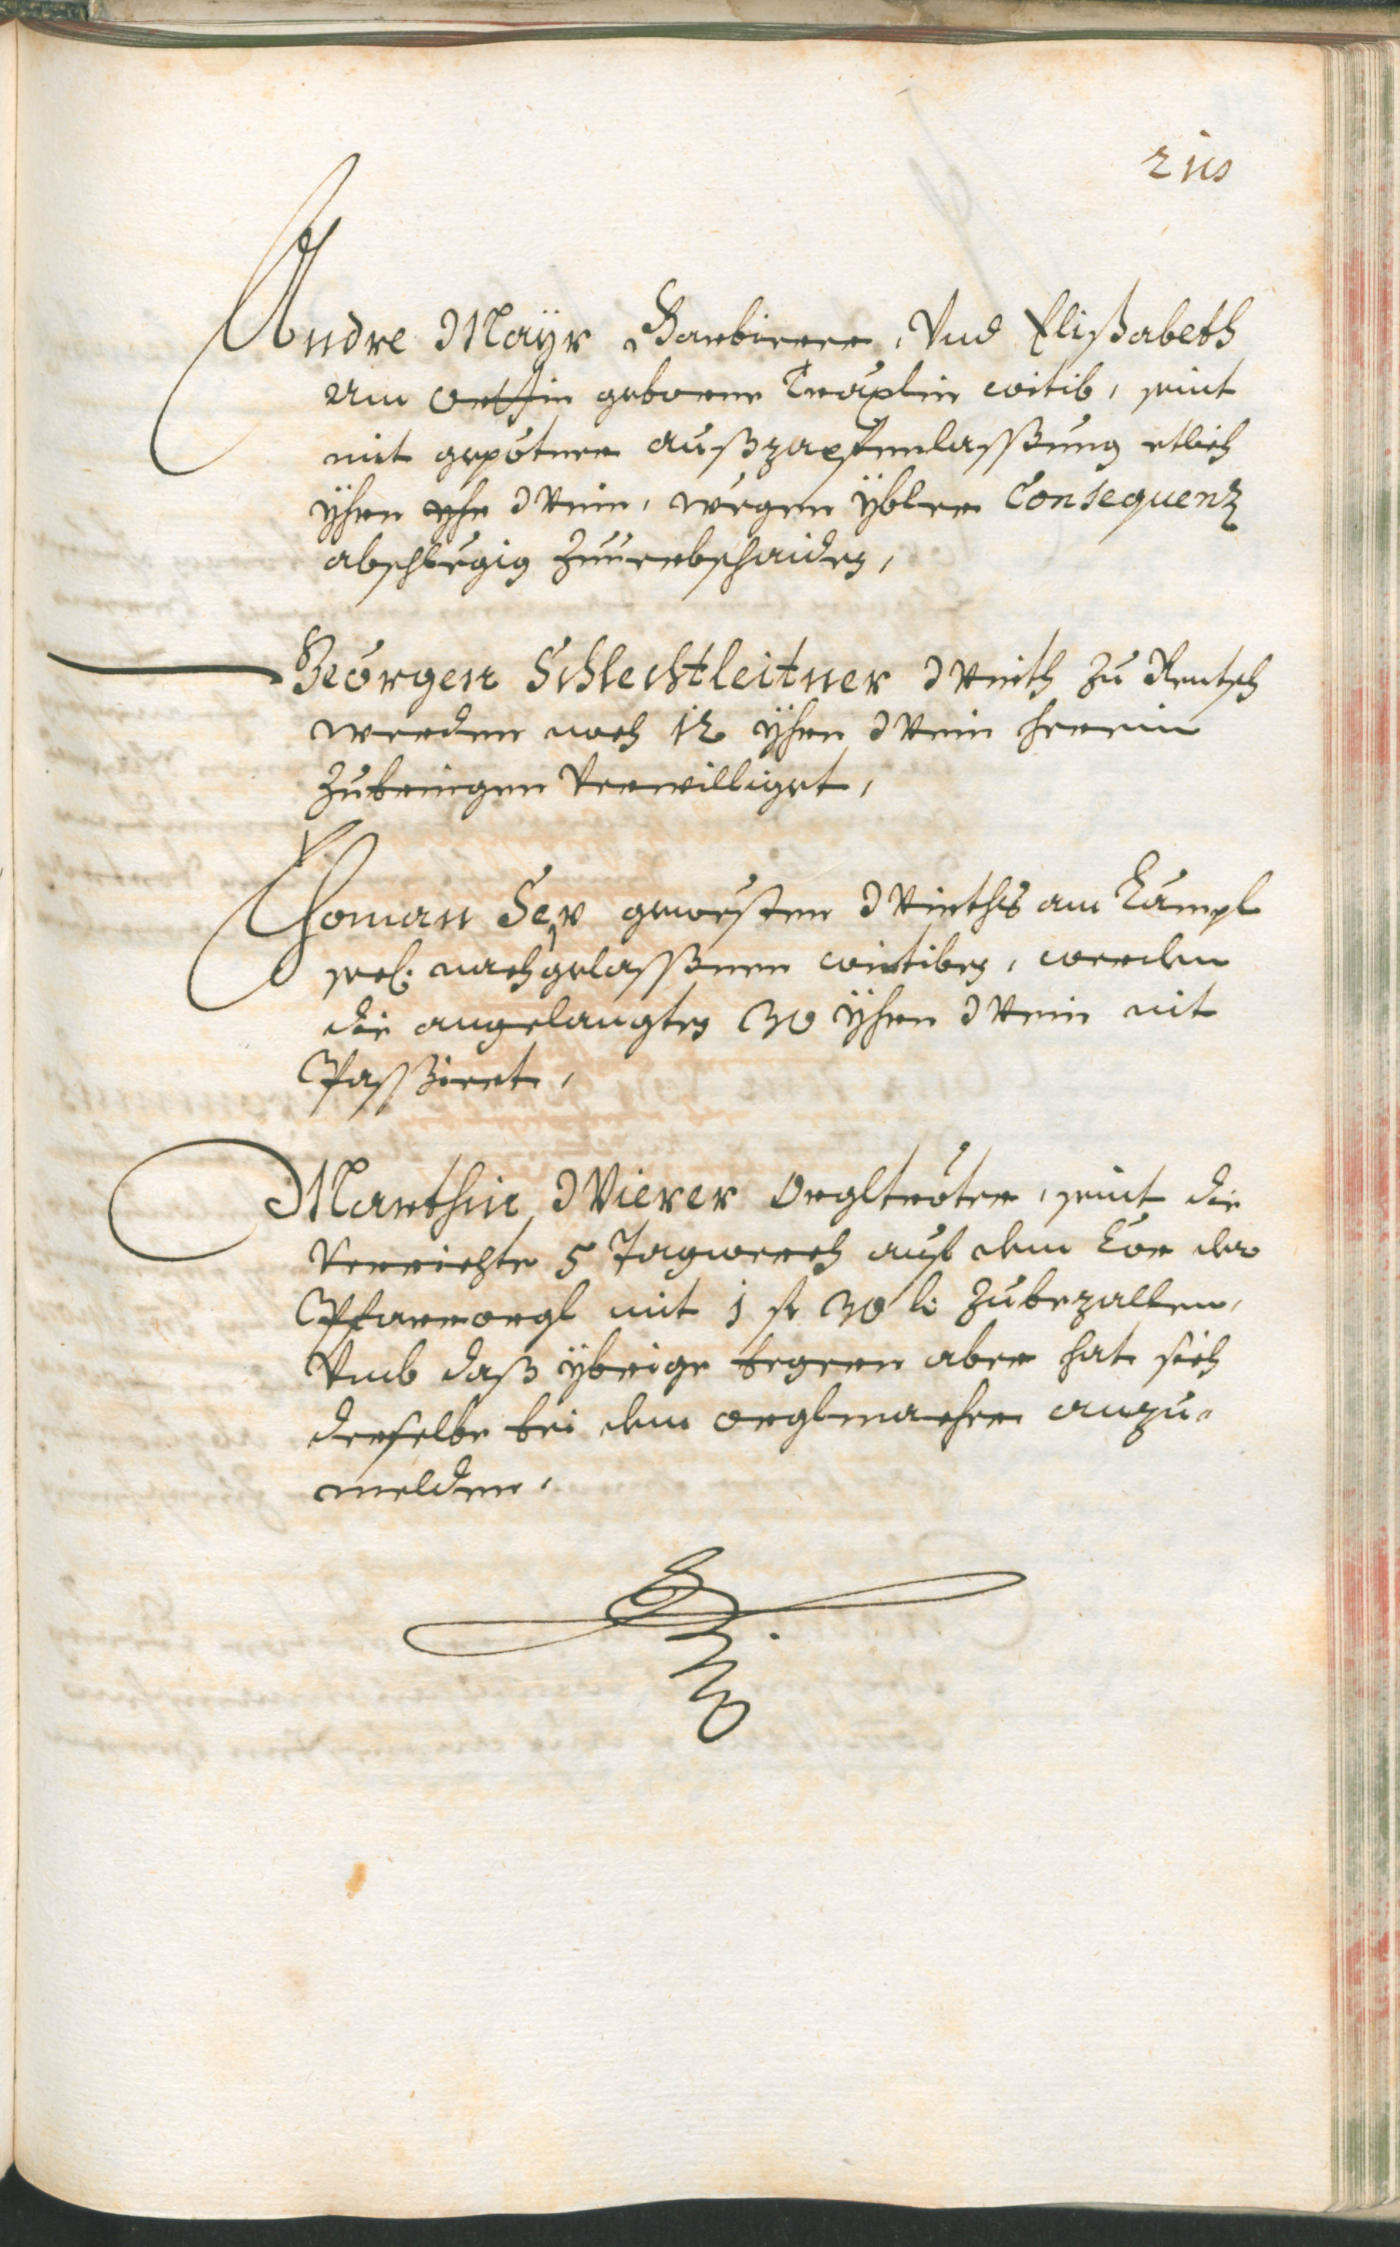 Andre Mayr Barbierer, Vnd Elißabeth
geborne Träxlin witib, seint
mit gepötner außzapfenlassung etlich
Yhrn Wein, wegen ÿbler Consequenz
abschlegig zuuerbschaiden,
Geörgen Schlechtleitner Wirth zu Rentsch
werden noch 12 ÿhrn Wein herein
zubringen Verwilliget,
Thoman gewesten Wirths am Lämpl
sel: nachgelassnen wittiben, werden
die angelangten 30 ÿhrn Wein nit
Passiert,
Marthin Wierer Orgltröter, seint die
Verrichte 5 Tagwerch auf dem Cor der
Pfarrorgl mit 1 fl 30 kr zubezallen,
Vmb daß ÿbrige begern aber hat sich
derselbe bei dem orglmacher anzu-
melden,